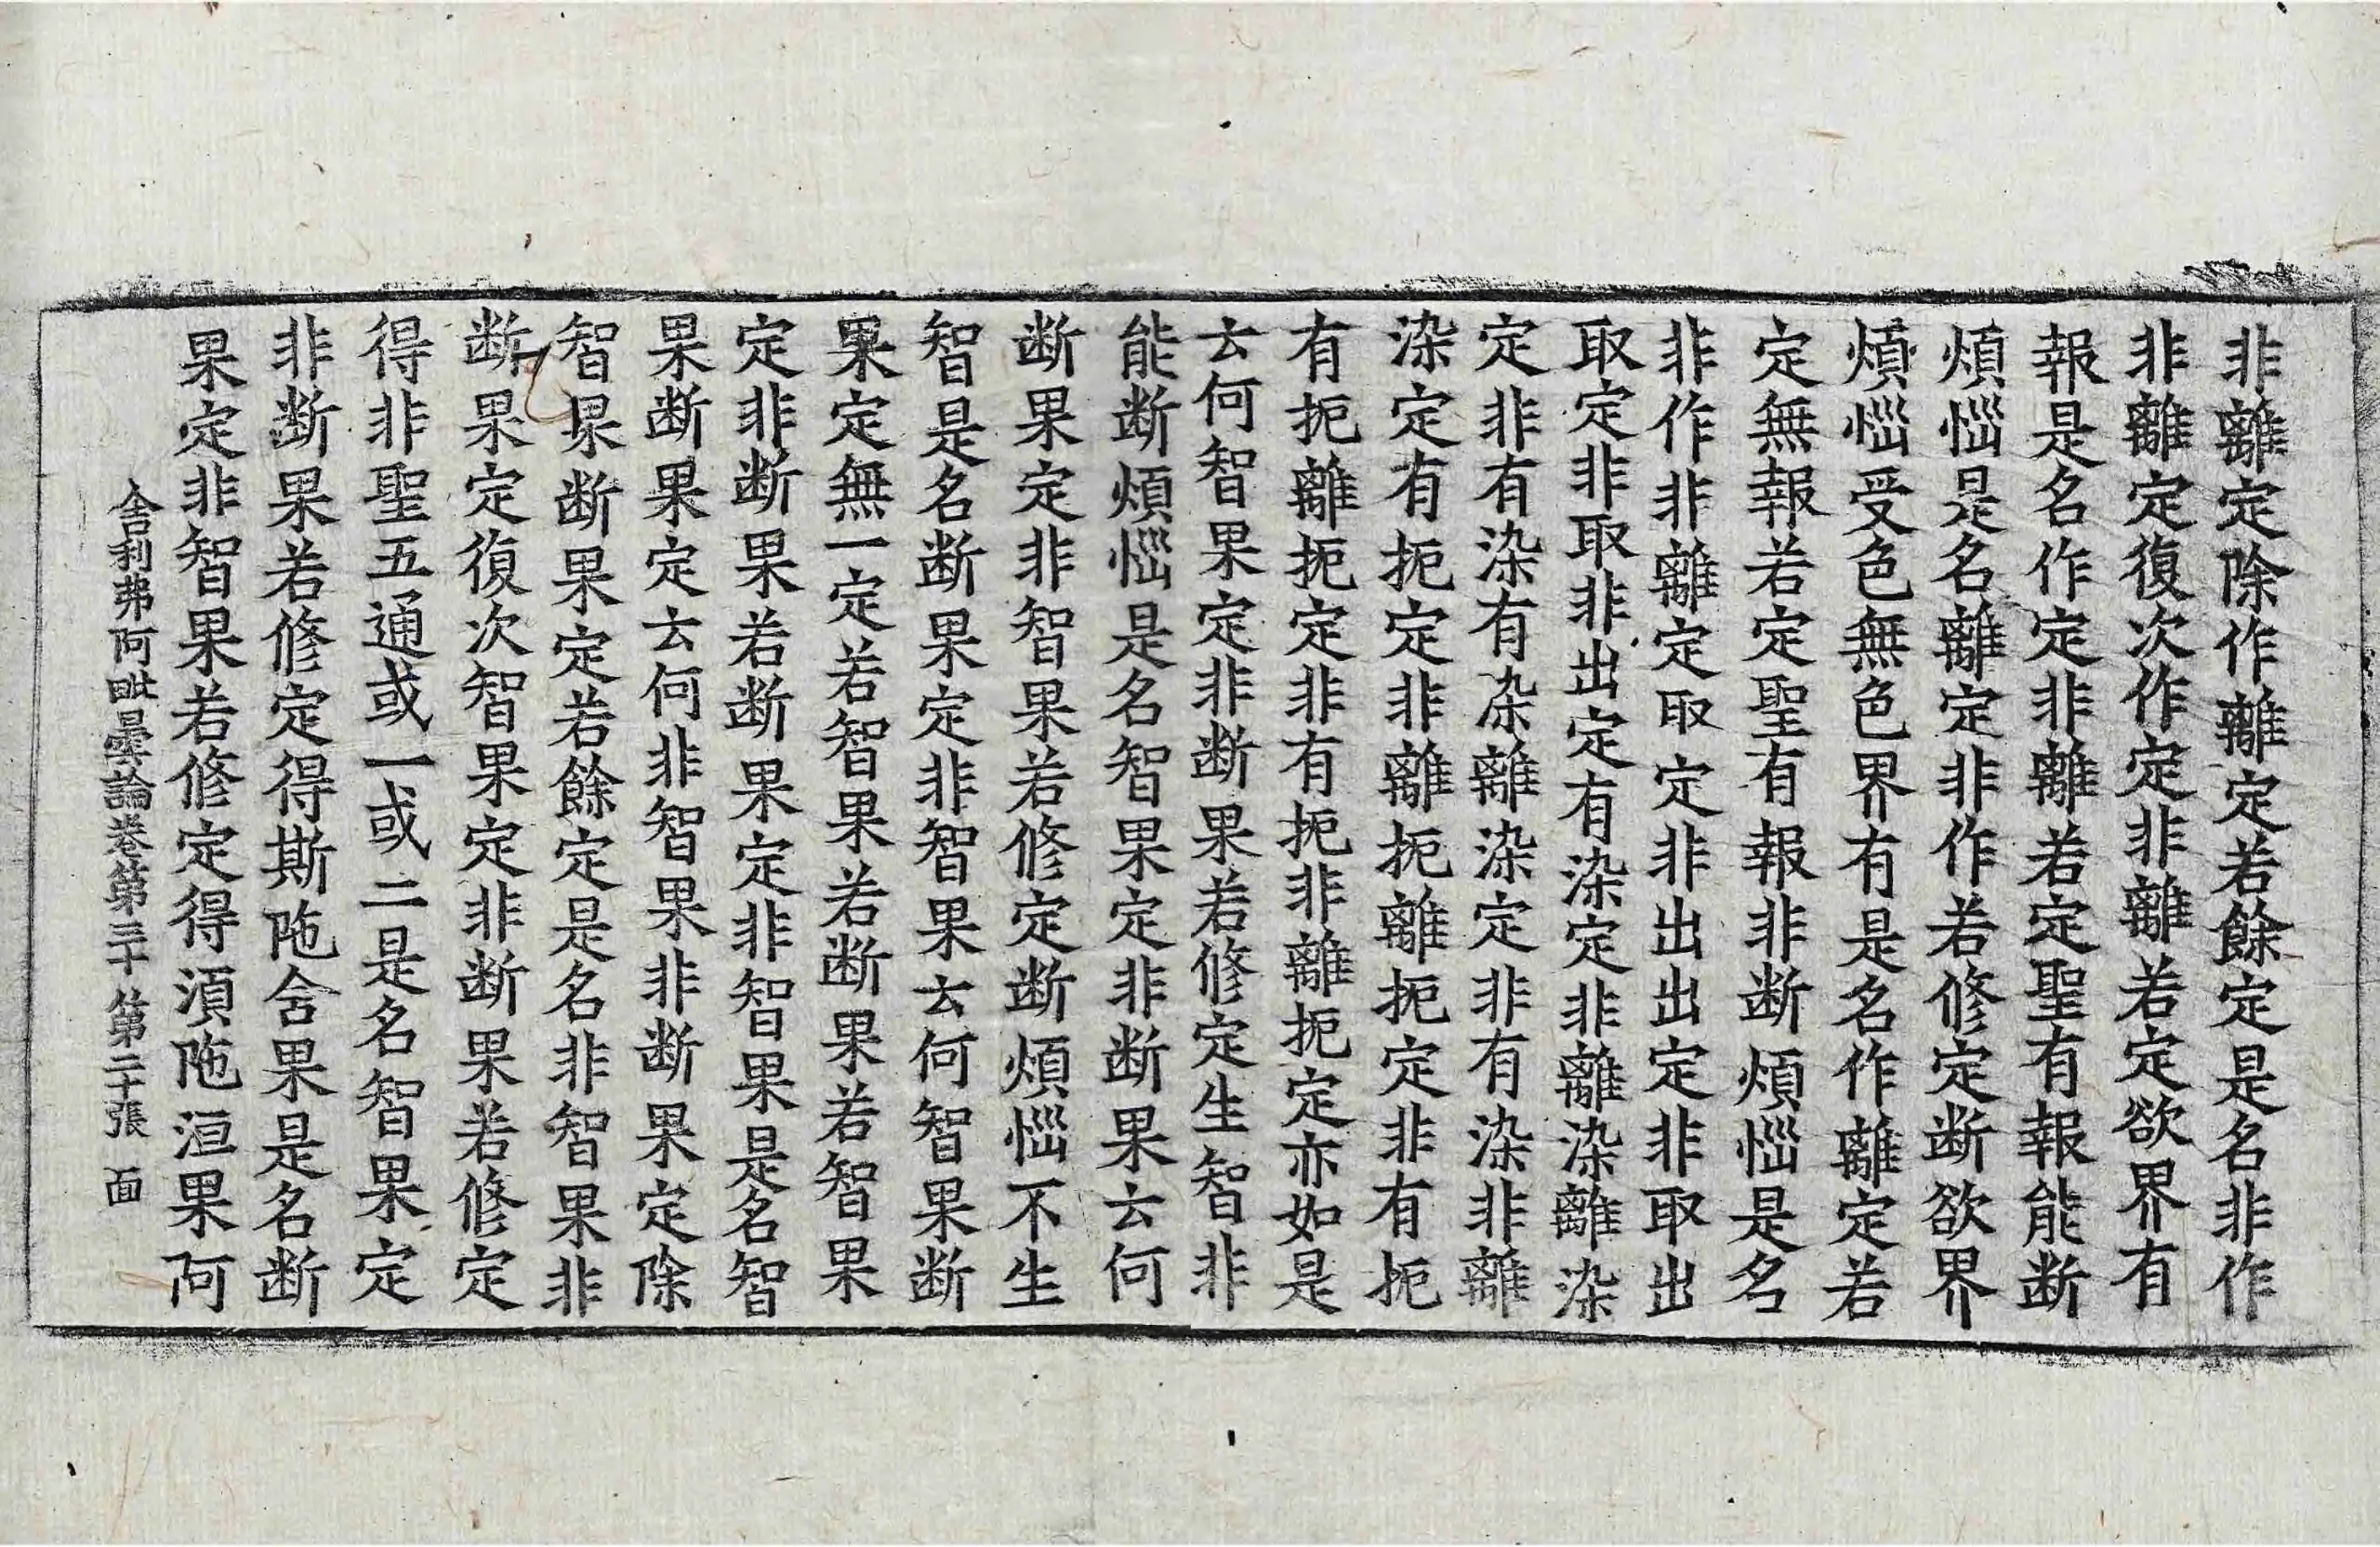 非離定除作離定若餘定是名非作
非離定復次作定非離若定欲界有
報是名作定非離若定聖有報能断
煩惱是名離定非作若修定断欲界
煩惱受色無色界有是名作離定若
定無報若定聖有報非断煩惱是名
非作非離定取定非出出定非取出
取定非取非出定有染定非離染離染
定非有染有染離染定非有染非離
染定有扼定非離扼離扼定非有扼
有扼離扼定非有扼非離扼定亦如是
去何智果定非断果若修定生智非
能断煩惱是名智果定非断果去何
断果定非智果若修定断煩惱不生
智是名断果定非智果去何智果断
果定無一定若智果若断果若智果
定非断果若断果定非智果是名智
果断果定去何非智果非断果定除
智果断果定若餘定是名非智果非
断果定復次智果定非断果若修定
得非聖五通或一或二是名智果定
非断果若修定得斯陁含果是名断
果定非智果若修定得湏陁洹果阿
舎利弗阿毗曇論卷第三十 第二十張 面